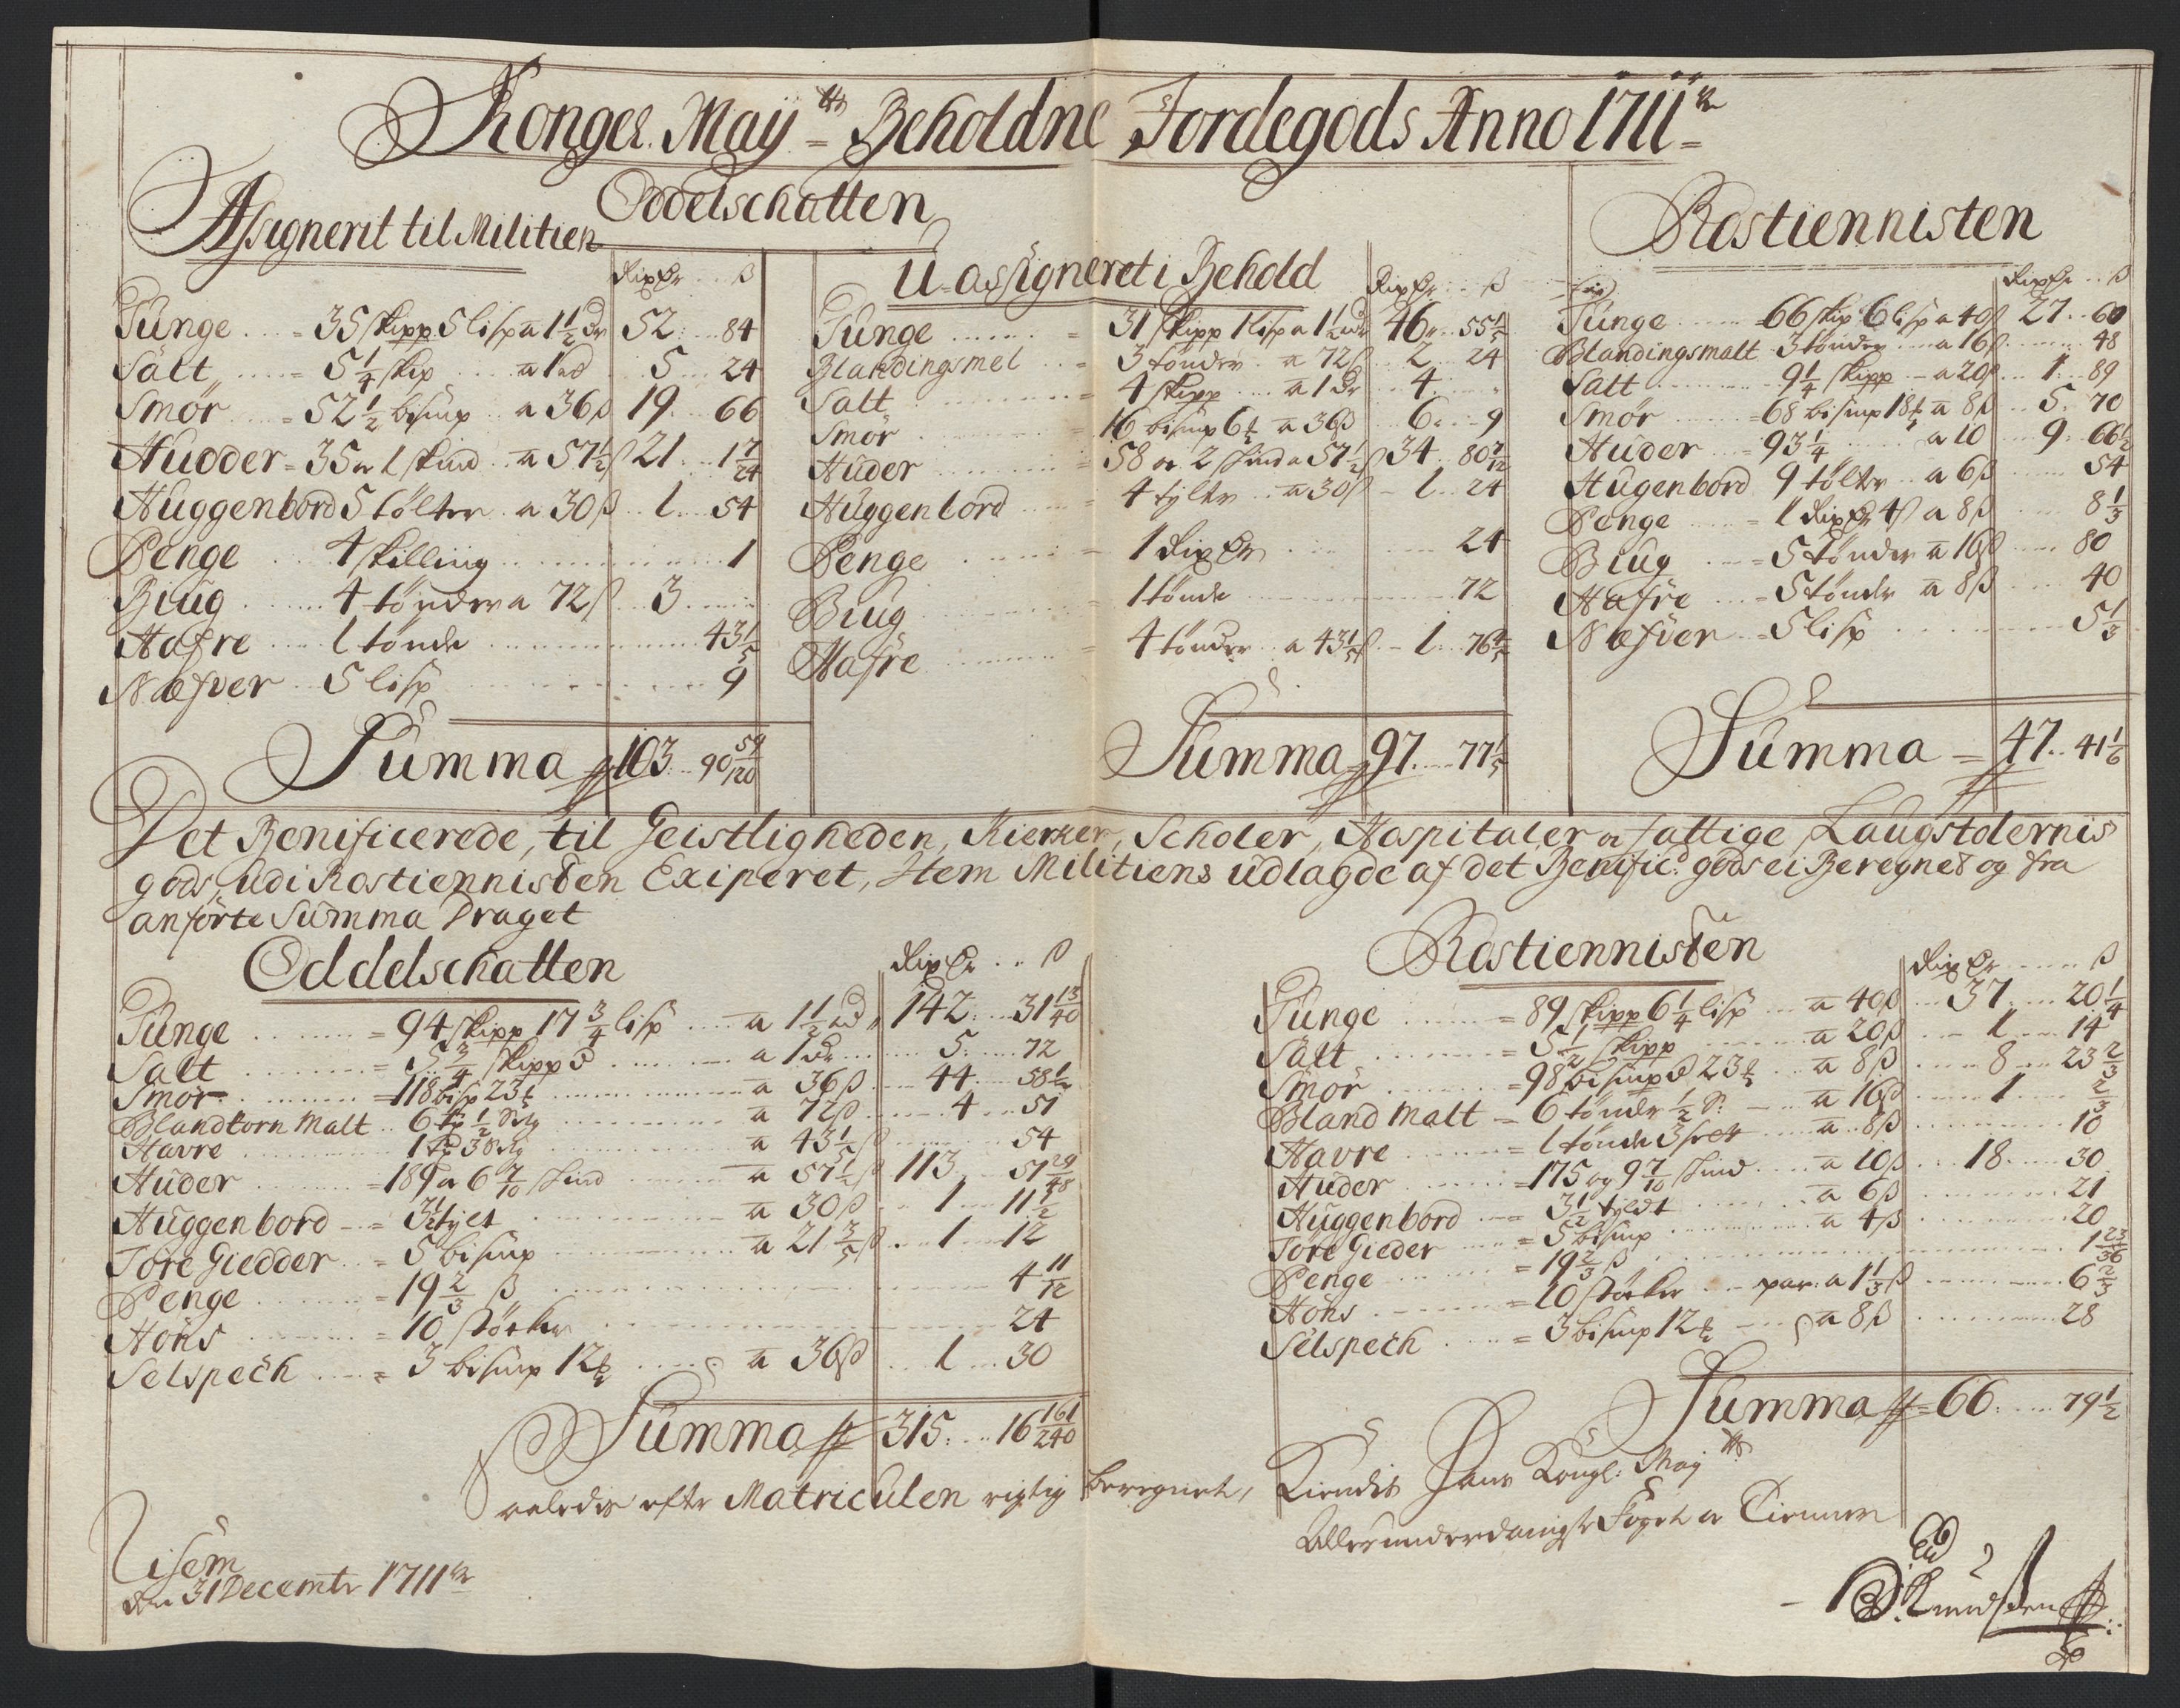 Kongel. Mayts Beholdne Jordegods Anno 1711
Oddelschatten
Assignerit til Militien
Rixdr ß
Tunge 35 skipp 5 lisp a 1½ dr 52 84
Salt 5¼ skip a 1 rd 5 24
Smör = 52½ bismp a 36 ß 19 66
Hudder = 35 oc 1 skind a 57½ ß 21 1 7/24
Huggenbord 5 tølter a 30 ß 1 54
Penge 4 skilling 1
Biug 4 tønder a 72 ß 3
Hafre 1 tønde 43 1/5
Næfver 5 lisp 9
Summa 103 90 59/120
U-assigneret i Behold
Rixdr ß
Tunge = 31 skipp 1 lisp a 1½ dr 46 55 1/5
Blandingsmel = 3 tønder a 72 ß 2 24
Salt = 4 skipp a 1 dr 4
Smör = 16 bismp 6 a 36 ß 6 9
Huder = 58 oc 2 skind a 57½ ß 34 80 7/12
Huggenbord = 4 tylter a 30 ß 1 24
Penge = 1 Rixdr 24
Biug = 1 tønde 72
Hafre = 4 tønder a 43 1/5 ß 1 76 4/5
Summa 97 77 1/5
Rostiennisten
Rixdr ß
Tunge = 66 skip 6 lisp a 40 ß 27 60
Blandingsmalt 3 tønder a 16 ß 48
Salt 9¼ skipp a 20 ß 1 89
Smör = 68 bismp 18 a 8 ß 5 70
Huder = 93¼ a 10 9 66½
Hugenbord 9 tølter a 6 ß 54
Penge = 1 Rixdr 4 ß a 8 ß 8 1/3
Biug = 5 tønder a 16 ß 80
Hafre = 5 tønder a 8 ß 40
Næfver = 5 lisp 5 1/3
Summa = 47 41 1/6
Det Benificerede, til Geistligheden, Kierker, Scholer, Hospitaler oc fattige Laugstolernis
gods, udi Rostiennisten Exiperet, Item Militiens udlagde af det Benific: gods ei Beregnet og fra
anførte Summa Draget
Oddelschatten
Rixdr ß
Tunge = 94 skipp 17¾ lisp a 1½ rd 142 31 13/40
Salt = 5¾ skipp a 1 dr 5 72
Smör = 118 bisp 23 a 36 ß 44 58½
Blandkorn Malt 6 tø ½ Setg a 72 ß 4 51
Havre 1 tø 3 Setg a 43 1/5 ß 54
Huder = 189 a 6 7/10 skind a 57½ ß 113 51 29/48
Huggenbord = 3½ tylt a 30 ß 1 11½
Töre Giedder = 5 bismp a 21 3/5 ß 1 12
Penge = 19 2/3 ß 4 11/12
Höns = 10 støcker 24
Selspech = 3 bismp 12 a 36 ß 1 30
Summa 315 16 161/240
Rostiennisten
Rixdr ß
Tunge = 89 skipp 6¼ lisp a 40 ß 37 20¼
Salt = 5½ skipp a 20 ß 1 14
Smör = 98 bismpd 23 a 8 ß 8 23 2/3
Bland Malt = 6 tønder ½ S: a 16 ß 1 2/3
Havre = 1 tønde 3 a 8 ß 10
Huder = 175 og 9 7/10 skind a 10 ß 18 30
Huggenbord = 3½ tyldt a 6 ß 21
Töre Gieder = 5 bismp a 4 ß 20
Penge = 19 2/3 ß 1 23/36
Höns = 10 støcker par: a 1 1/3 ß 6 2/3
Selspech = 3 bismp 12 a 8 ß 28
Summa = 66 79½
Saaledis efter Matriculen rigtig beregnet, Kiendis Hans Kongl: Mayts
Allerunderdanigste Foget oc Tienner
Risem
den 31 Decembr 1711
Knudsen